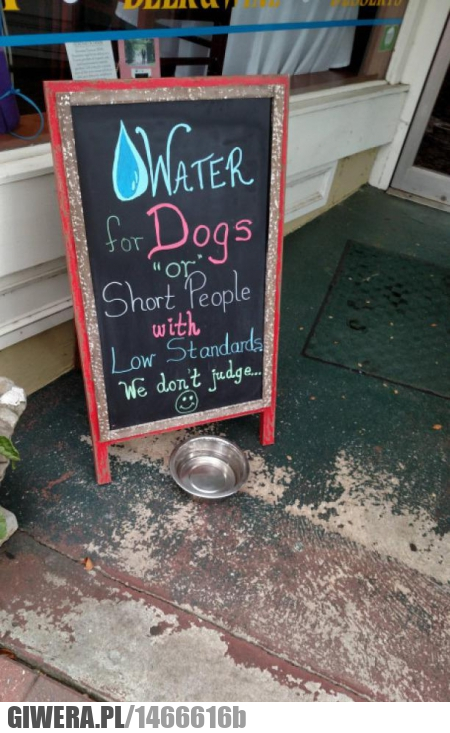 BEER & WINE DESSERTS
WATER
for Dogs
"or"
Short People
with
Low Standards
We don't judge...
GIWERA.PL/1466616b